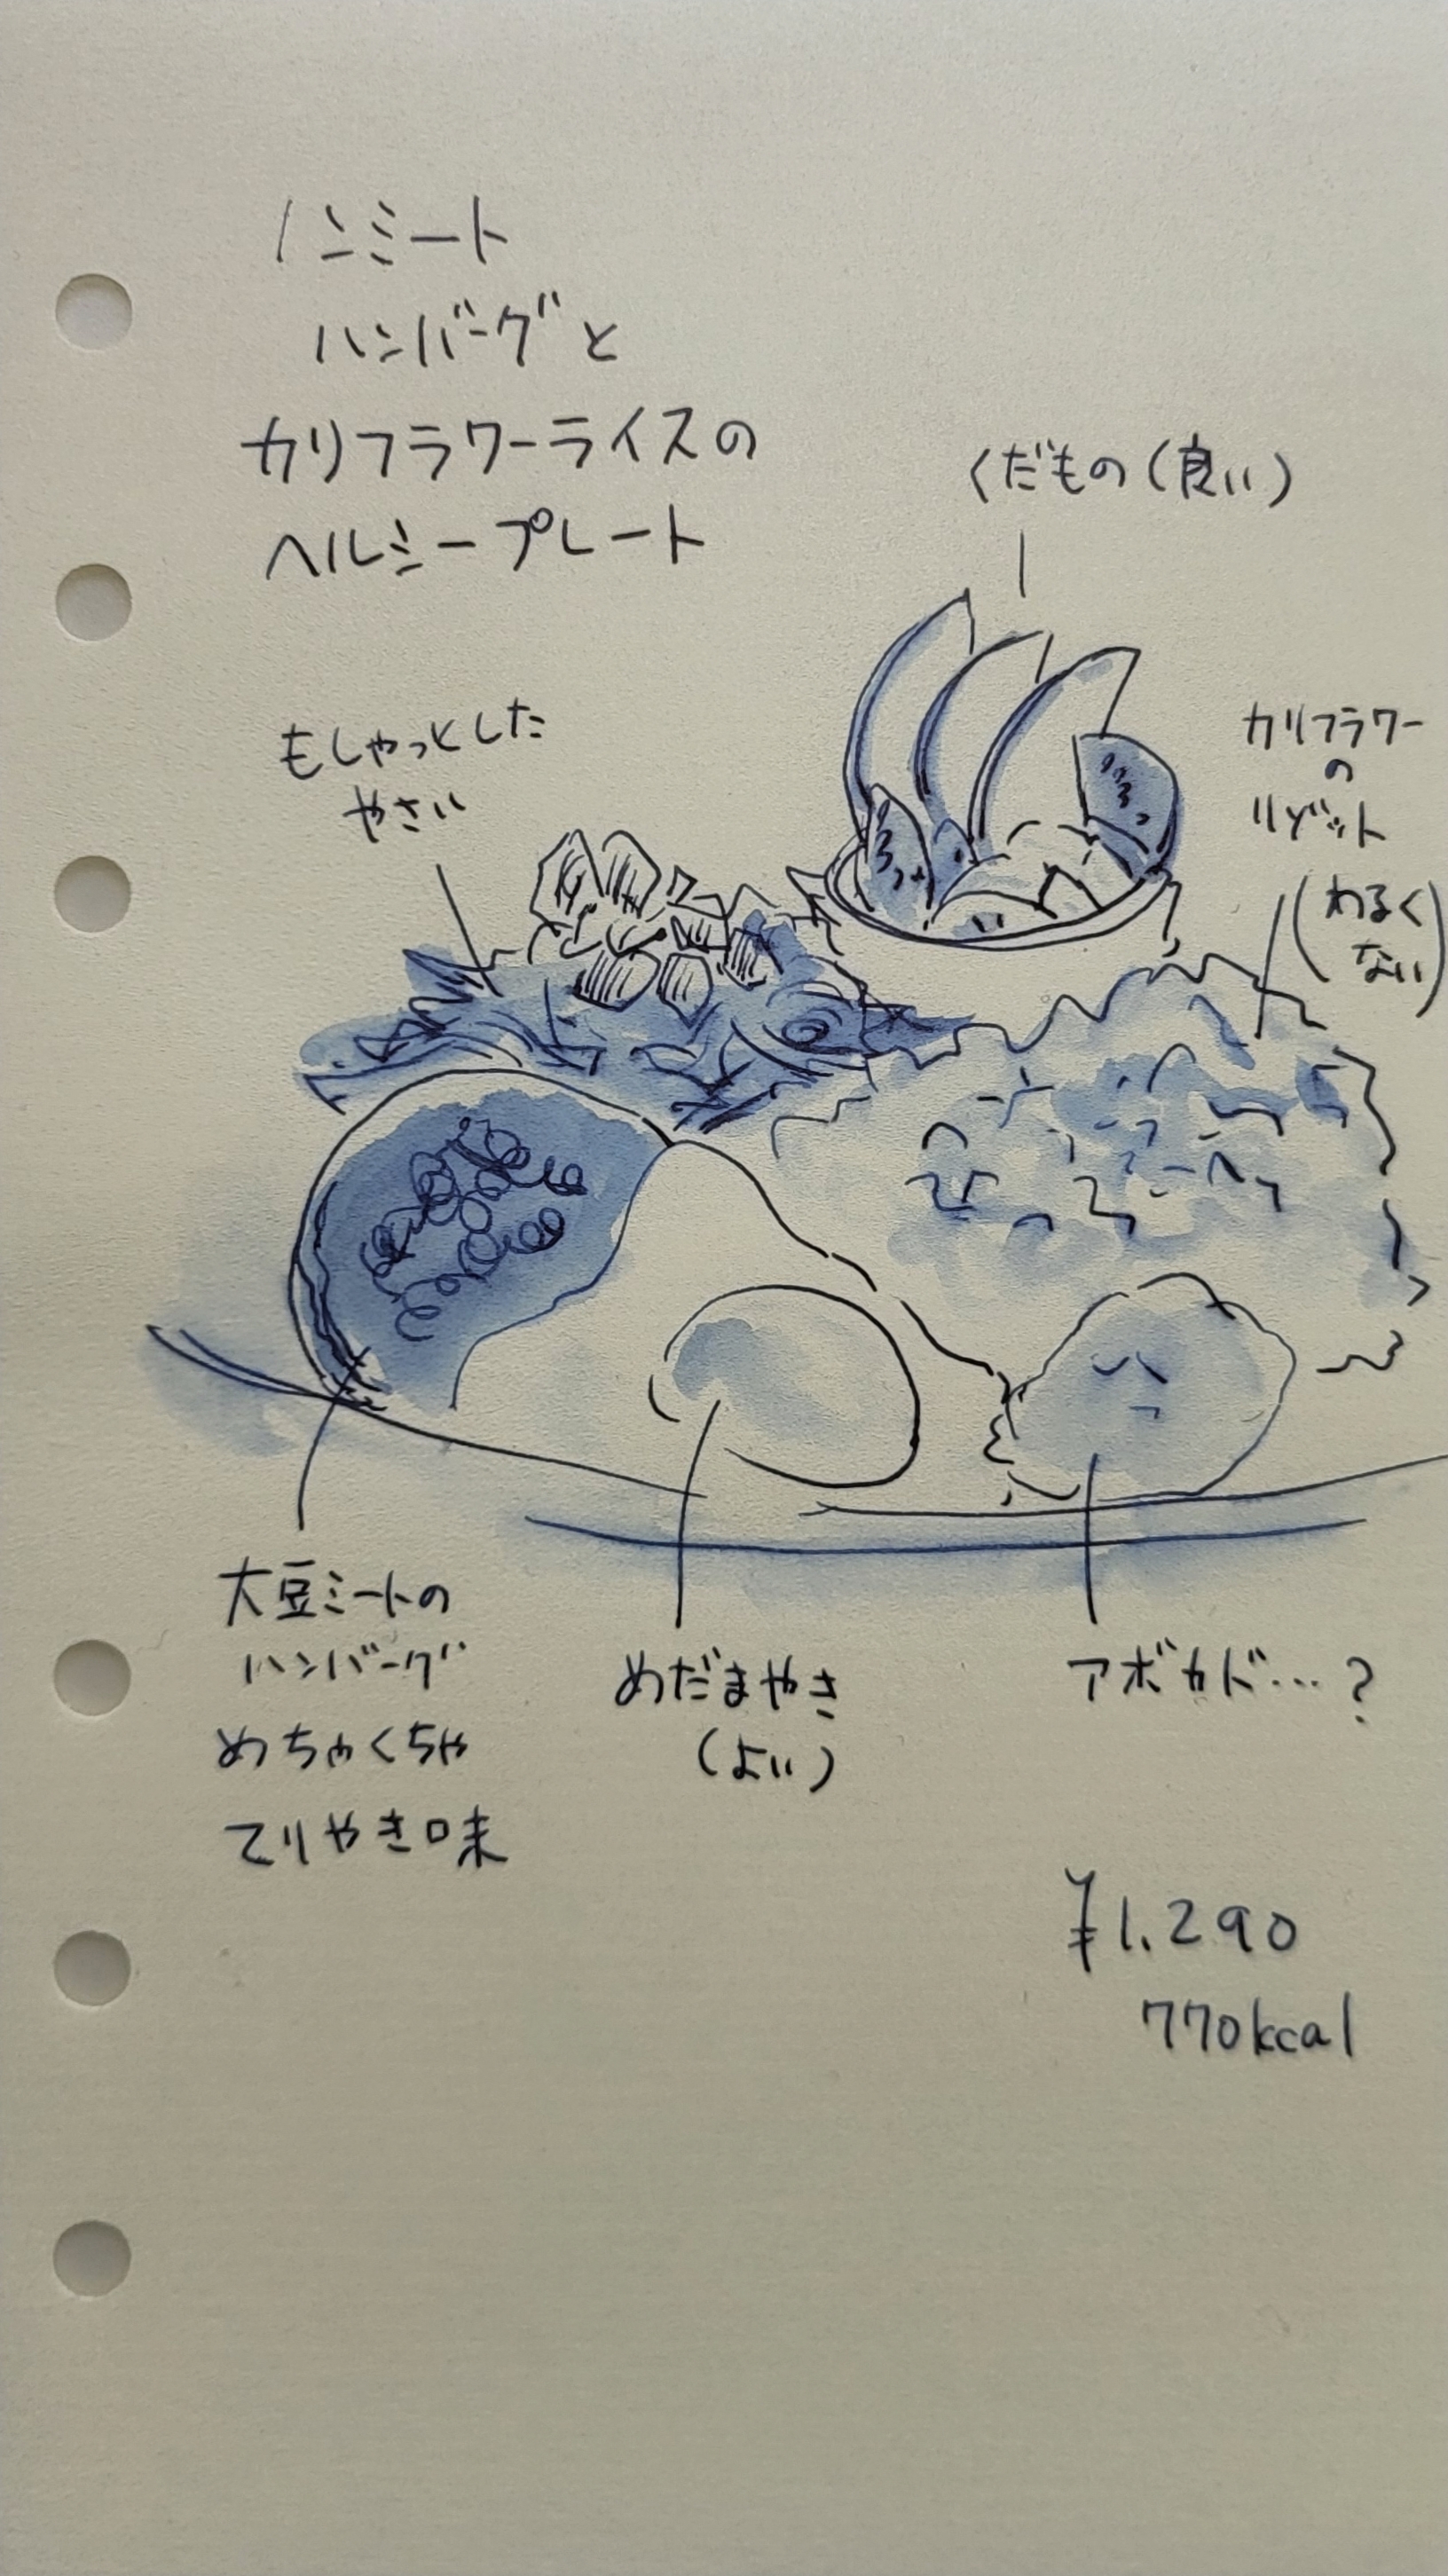 ノンミート
ハンバーグと
カリフラワーライスの
ヘルシープレート
くだもの(良い)
もしゃっとした
やさい
カリフラワー
の
リゾット
(わるく
ない)
大豆ミートの
ハンバーグ
めちゃくちゃ
てりやき味
めだまやき
(よい)
アボカド…?
¥1.290
770kcal